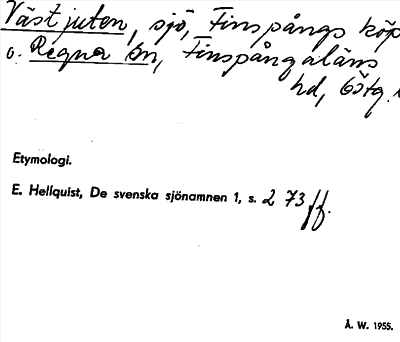 Västjuten, sjö, Finspångs köp
o. Regna sn, Finspångaläns
hd, Östg.
Etymologi.
E. Hellquist, De svenska sjönamnen 1, s. 273 ff.
Å. W. 1955.